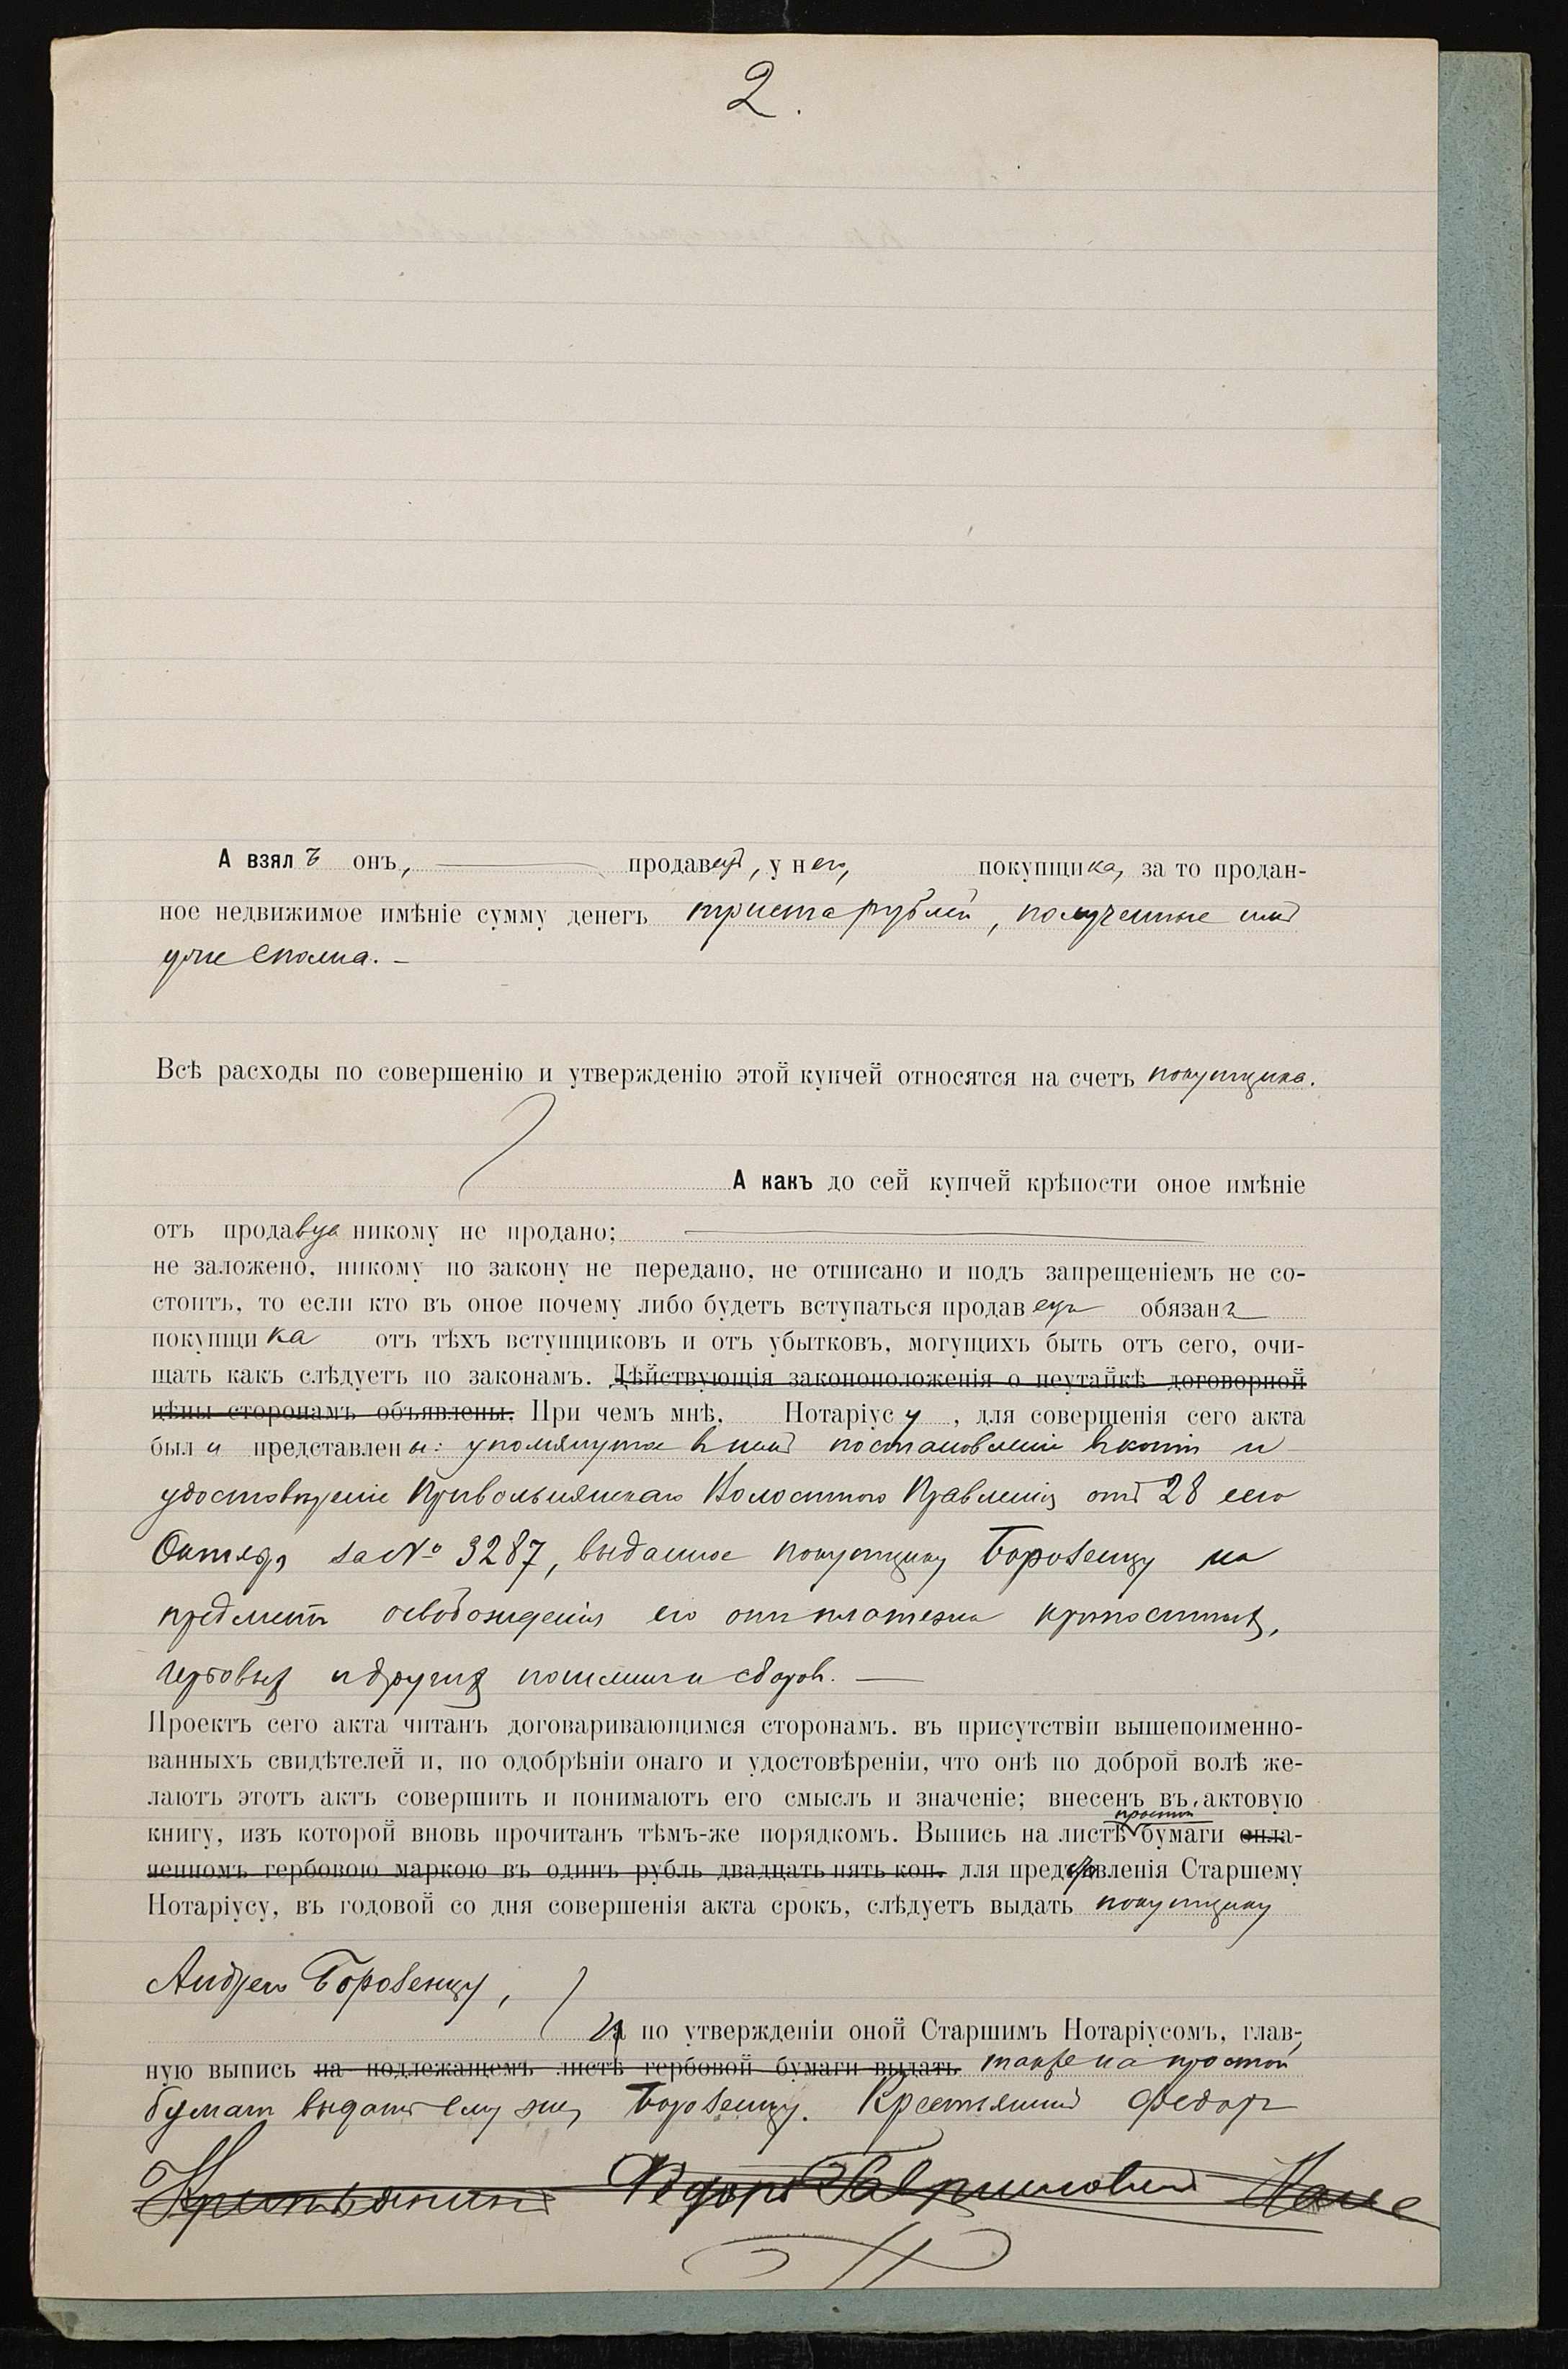 2.
А взялъ онъ, продавецъ, у него, покупщика, за то продан-
ное недвижимое имѣніе сумму денегъ триста рублей, полученные имъ
уже сполна. –
Всѣ расходы по совершенію и утвержденію этой купчей относятся на счетъ покупщика.
А какъ до сей купчей крѣпости оное имѣніе
отъ продавца никому не продано;
не заложено, никому по закону не передано, не отписано и подъ запрещеніемъ не со-
стоитъ, то если кто въ оное почему либо будетъ вступаться продавецъ обязанъ
покупщика отъ тѣхъ вступщиковъ и отъ убытковъ, могущихъ быть отъ сего, очи-
щать какъ слѣдуетъ по законамъ. Дѣйствующія законоположенія о неутайкѣ договорной
цѣны сторонамъ объявлены. При чемъ мнѣ, Нотаріусу, для совершенія сего акта
были представлены: упомянутое въ немъ постановленіе въ копіи и
удостовѣреніе Привольнянскаго Волостного Правленія отъ 28 сего
Октября за № 3287, выданное покупщику Боровенцу на
предметъ освобожденія его отъ платежа крѣпостныхъ,
гербовыхъ и другихъ пошлинъ и сборовъ. —
Проектъ сего акта читанъ договаривающимся сторонамъ. въ присутствіи вышепоименно-
ванныхъ свидѣтелей и, по одобрѣніи онаго и удостовѣреніи, что онѣ по доброй волѣ же-
лаютъ этотъ актъ совершить и понимаютъ его смыслъ и значеніе; внесенъ въ актовую
простой
книгу, изъ которой вновь прочитанъ тѣмъ-же порядкомъ. Выпись на листѣ бумаги опла-
ченномъ гербовою маркою въ одинъ рубль двадцать пять коп. для предъявленія Старшему
Нотаріусу, въ годовой со дня совершенія акта срокъ, слѣдуетъ выдать покупщику
Андрею Боровенцу,
а по утвержденіи оной Старшимъ Нотаріусомъ, глав-
ную выпись на подлежащемъ листѣ гербовой бумаги выдать также на простой
бумагѣ выдать ему же, Боровенцу. Крестьянинъ Федоръ
Крестьянинъ Федоръ Гавриловичъ